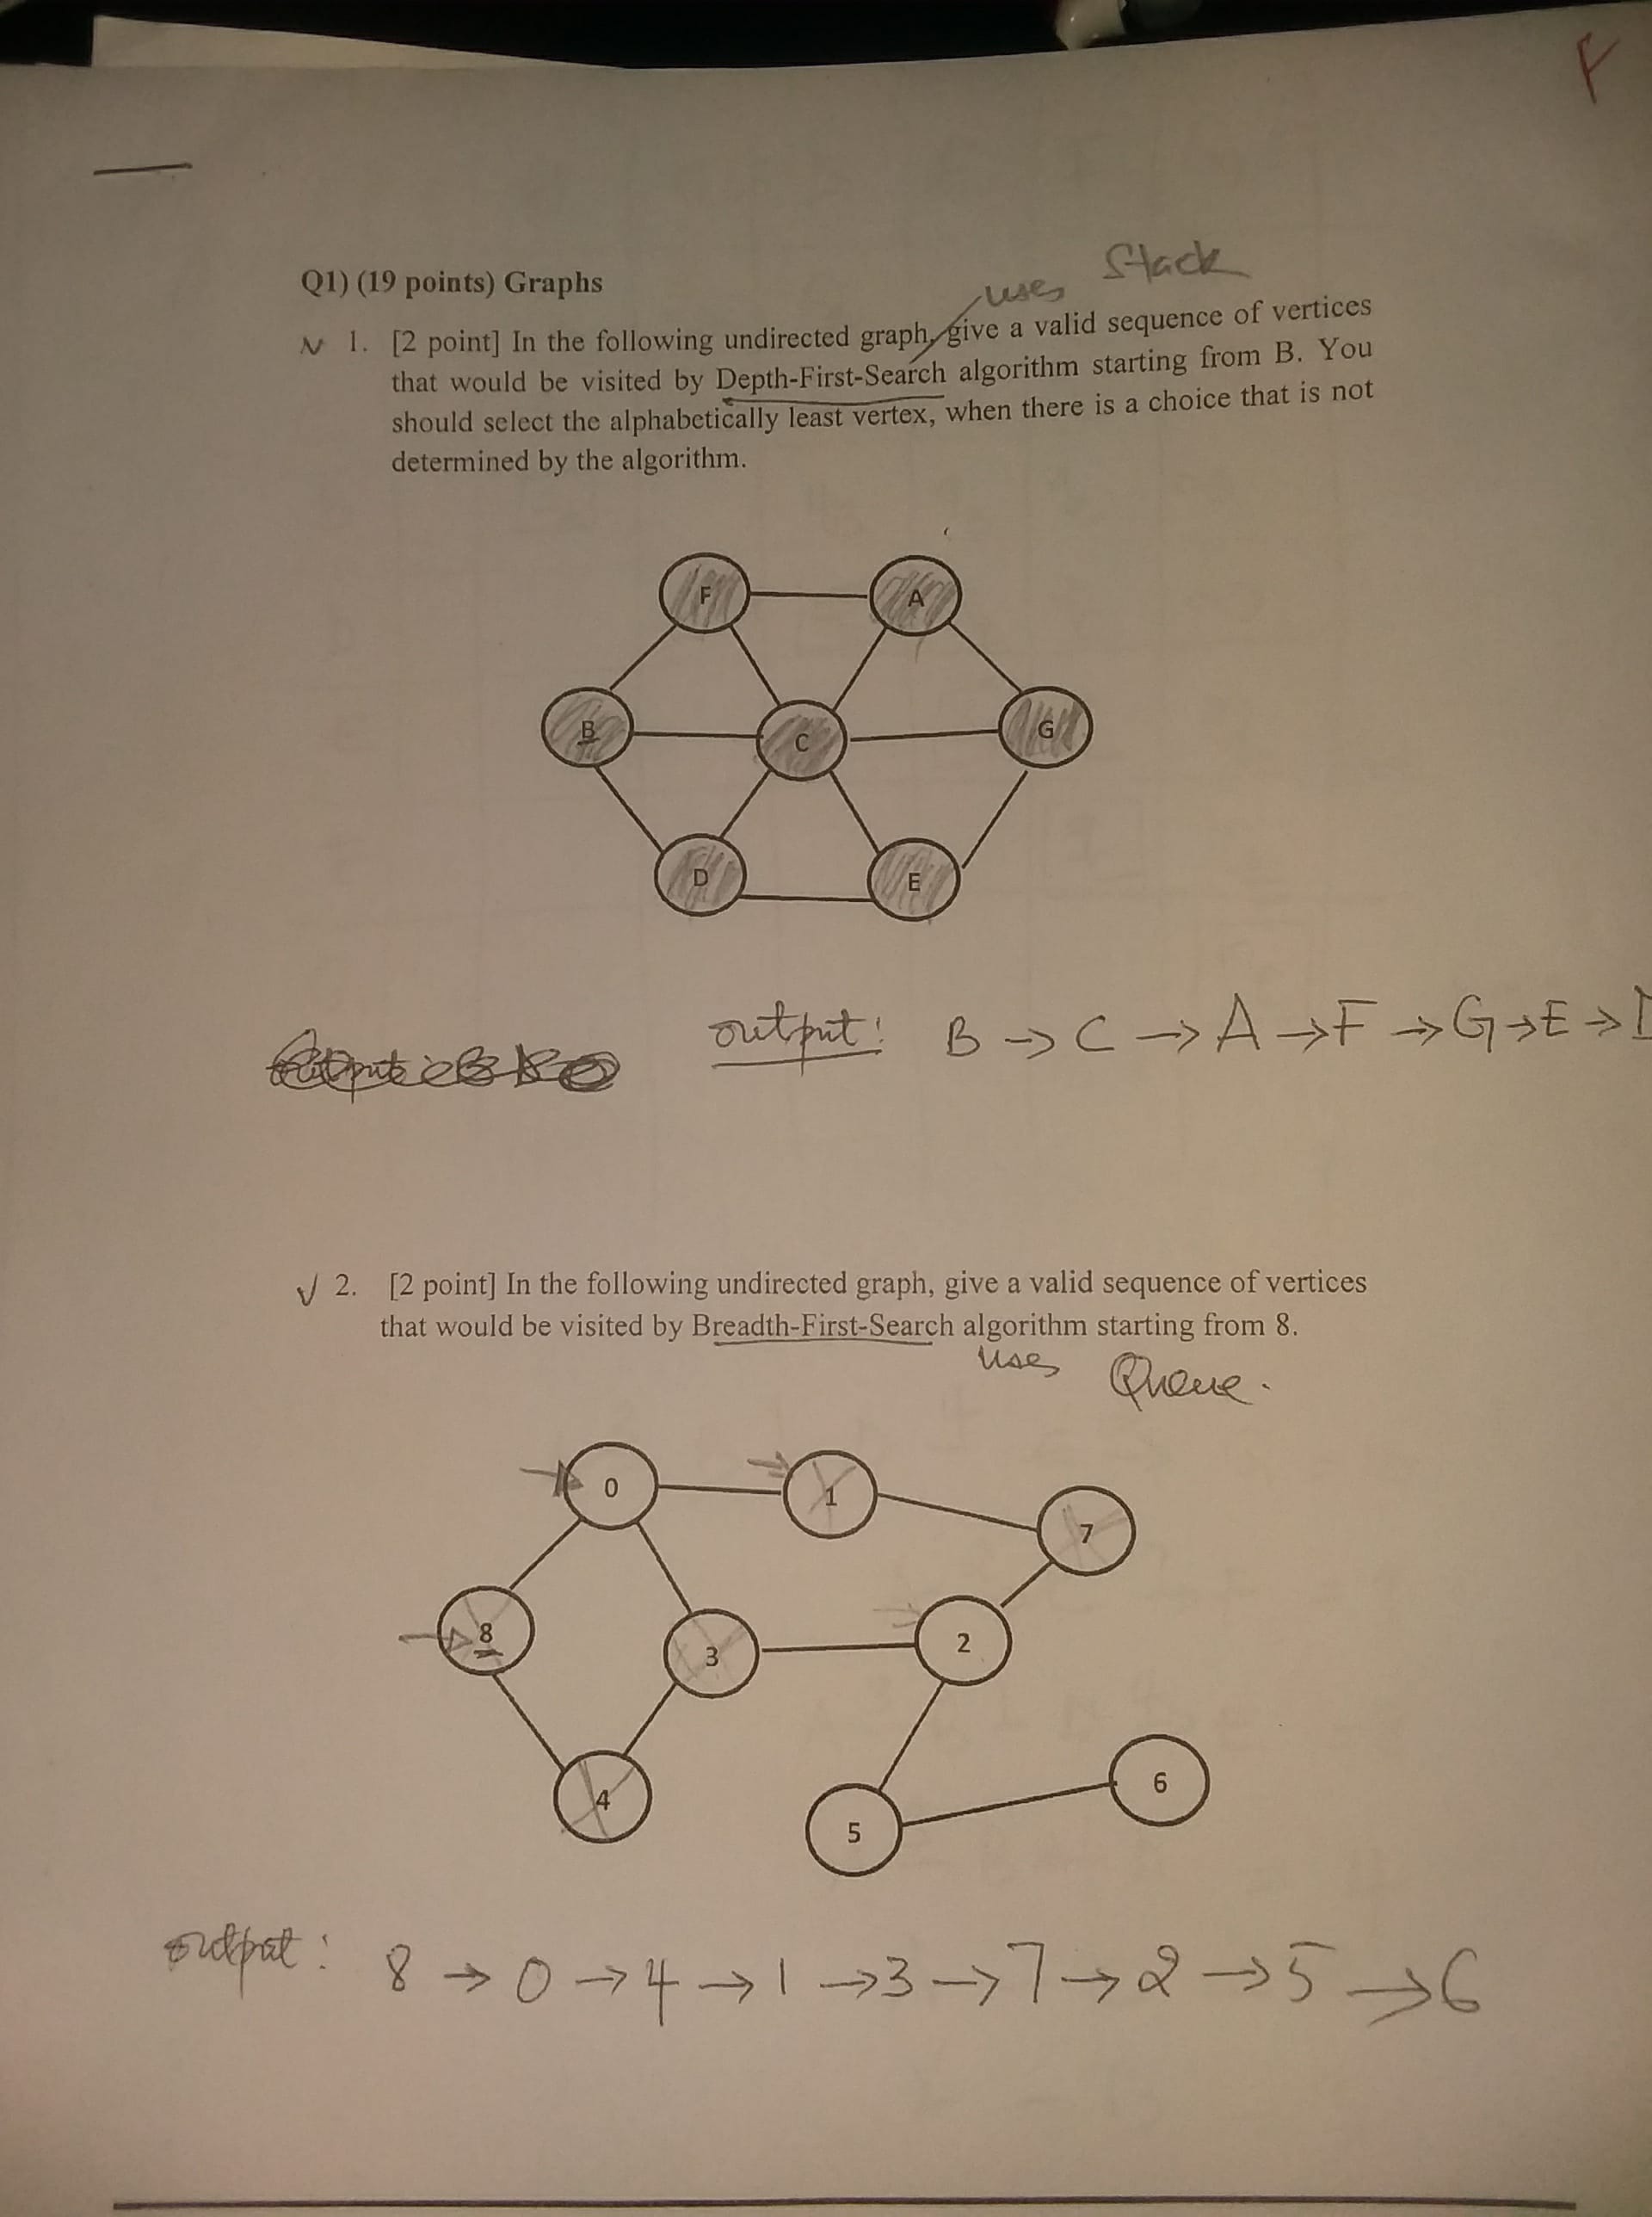 F
Stack
uses
Q1) (19 points) Graphs
1. [2 point] In the following undirected graph, give a valid sequence of vertices
that would be visited by Depth-First-Search algorithm starting from B. You
should select the alphabetically least vertex, when there is a choice that is not
determined by the algorithm.
F A
B C G
D E
output: B → C → A → F → G → E →
√ 2. [2 point] In the following undirected graph, give a valid sequence of vertices
that would be visited by Breadth-First-Search algorithm starting from 8.
uses Queue.
0 1
7
8 3 2
4 5 6
output: 8 → 0 → 4 → 1 → 3 → 7 → 2 → 5 → 6